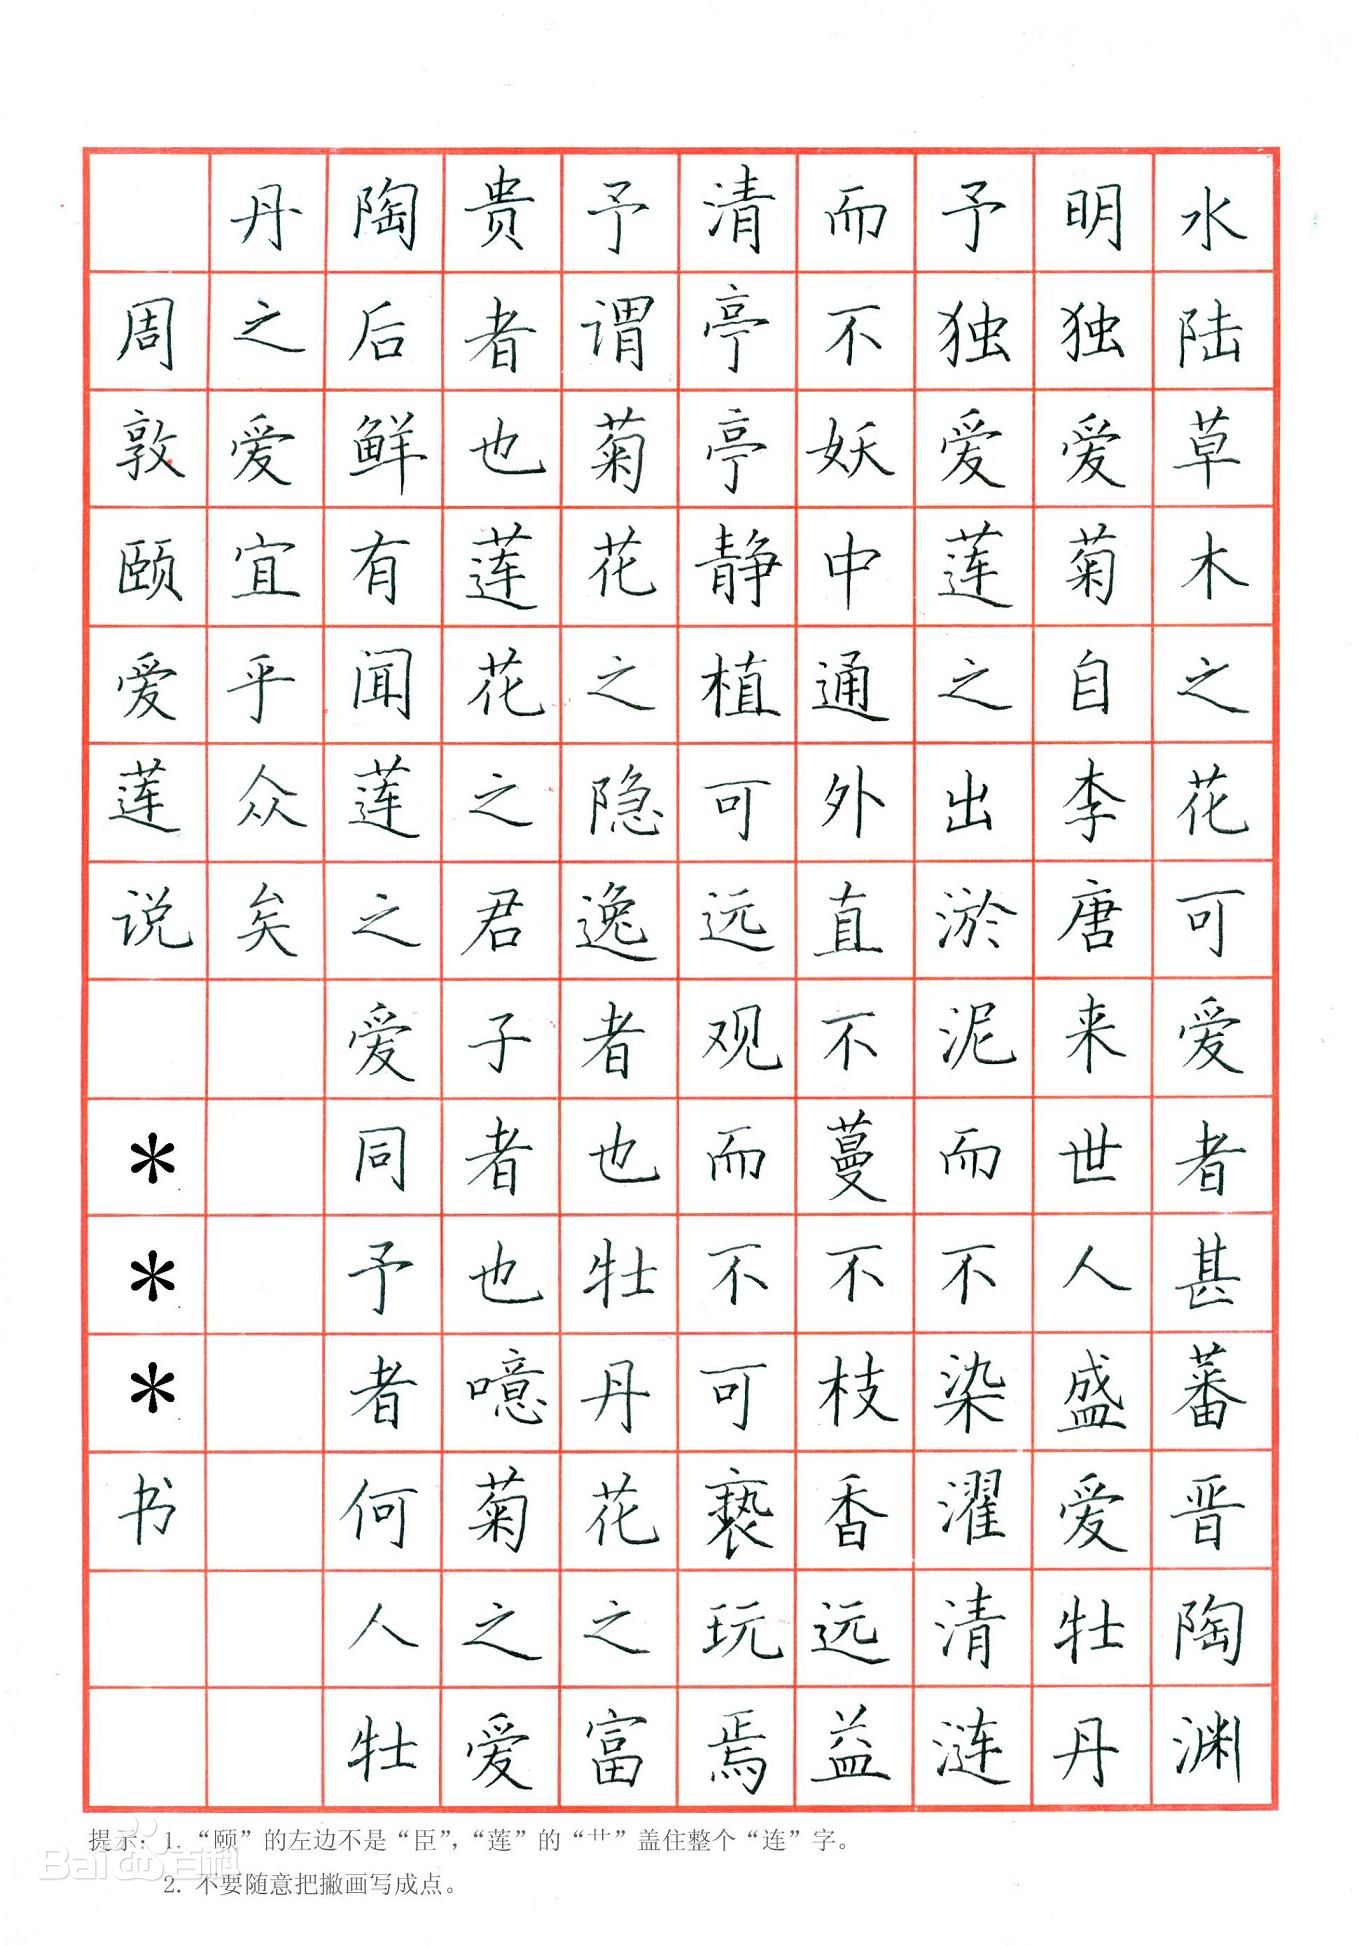 水陆草木之花可爱者甚蕃晋陶渊
明独爱菊自李唐来世人盛爱牡丹
予独爱莲之出淤泥而不染濯清涟
而不妖中通外直不蔓不枝香远益
清亭亭静植可远观而不可亵玩焉
予谓菊花之隐逸者也牡丹花之富
贵者也莲花之君子者也噫菊之爱
陶后鲜有闻莲之爱同予者何人牡
丹之爱宜乎众矣
周敦颐爱莲说 ＊＊＊书
提示：1. “颐”的左边不是“臣”，“莲”的“艹”盖住整个“连”字。
2. 不要随意把撇画写成点。
Baidu百科